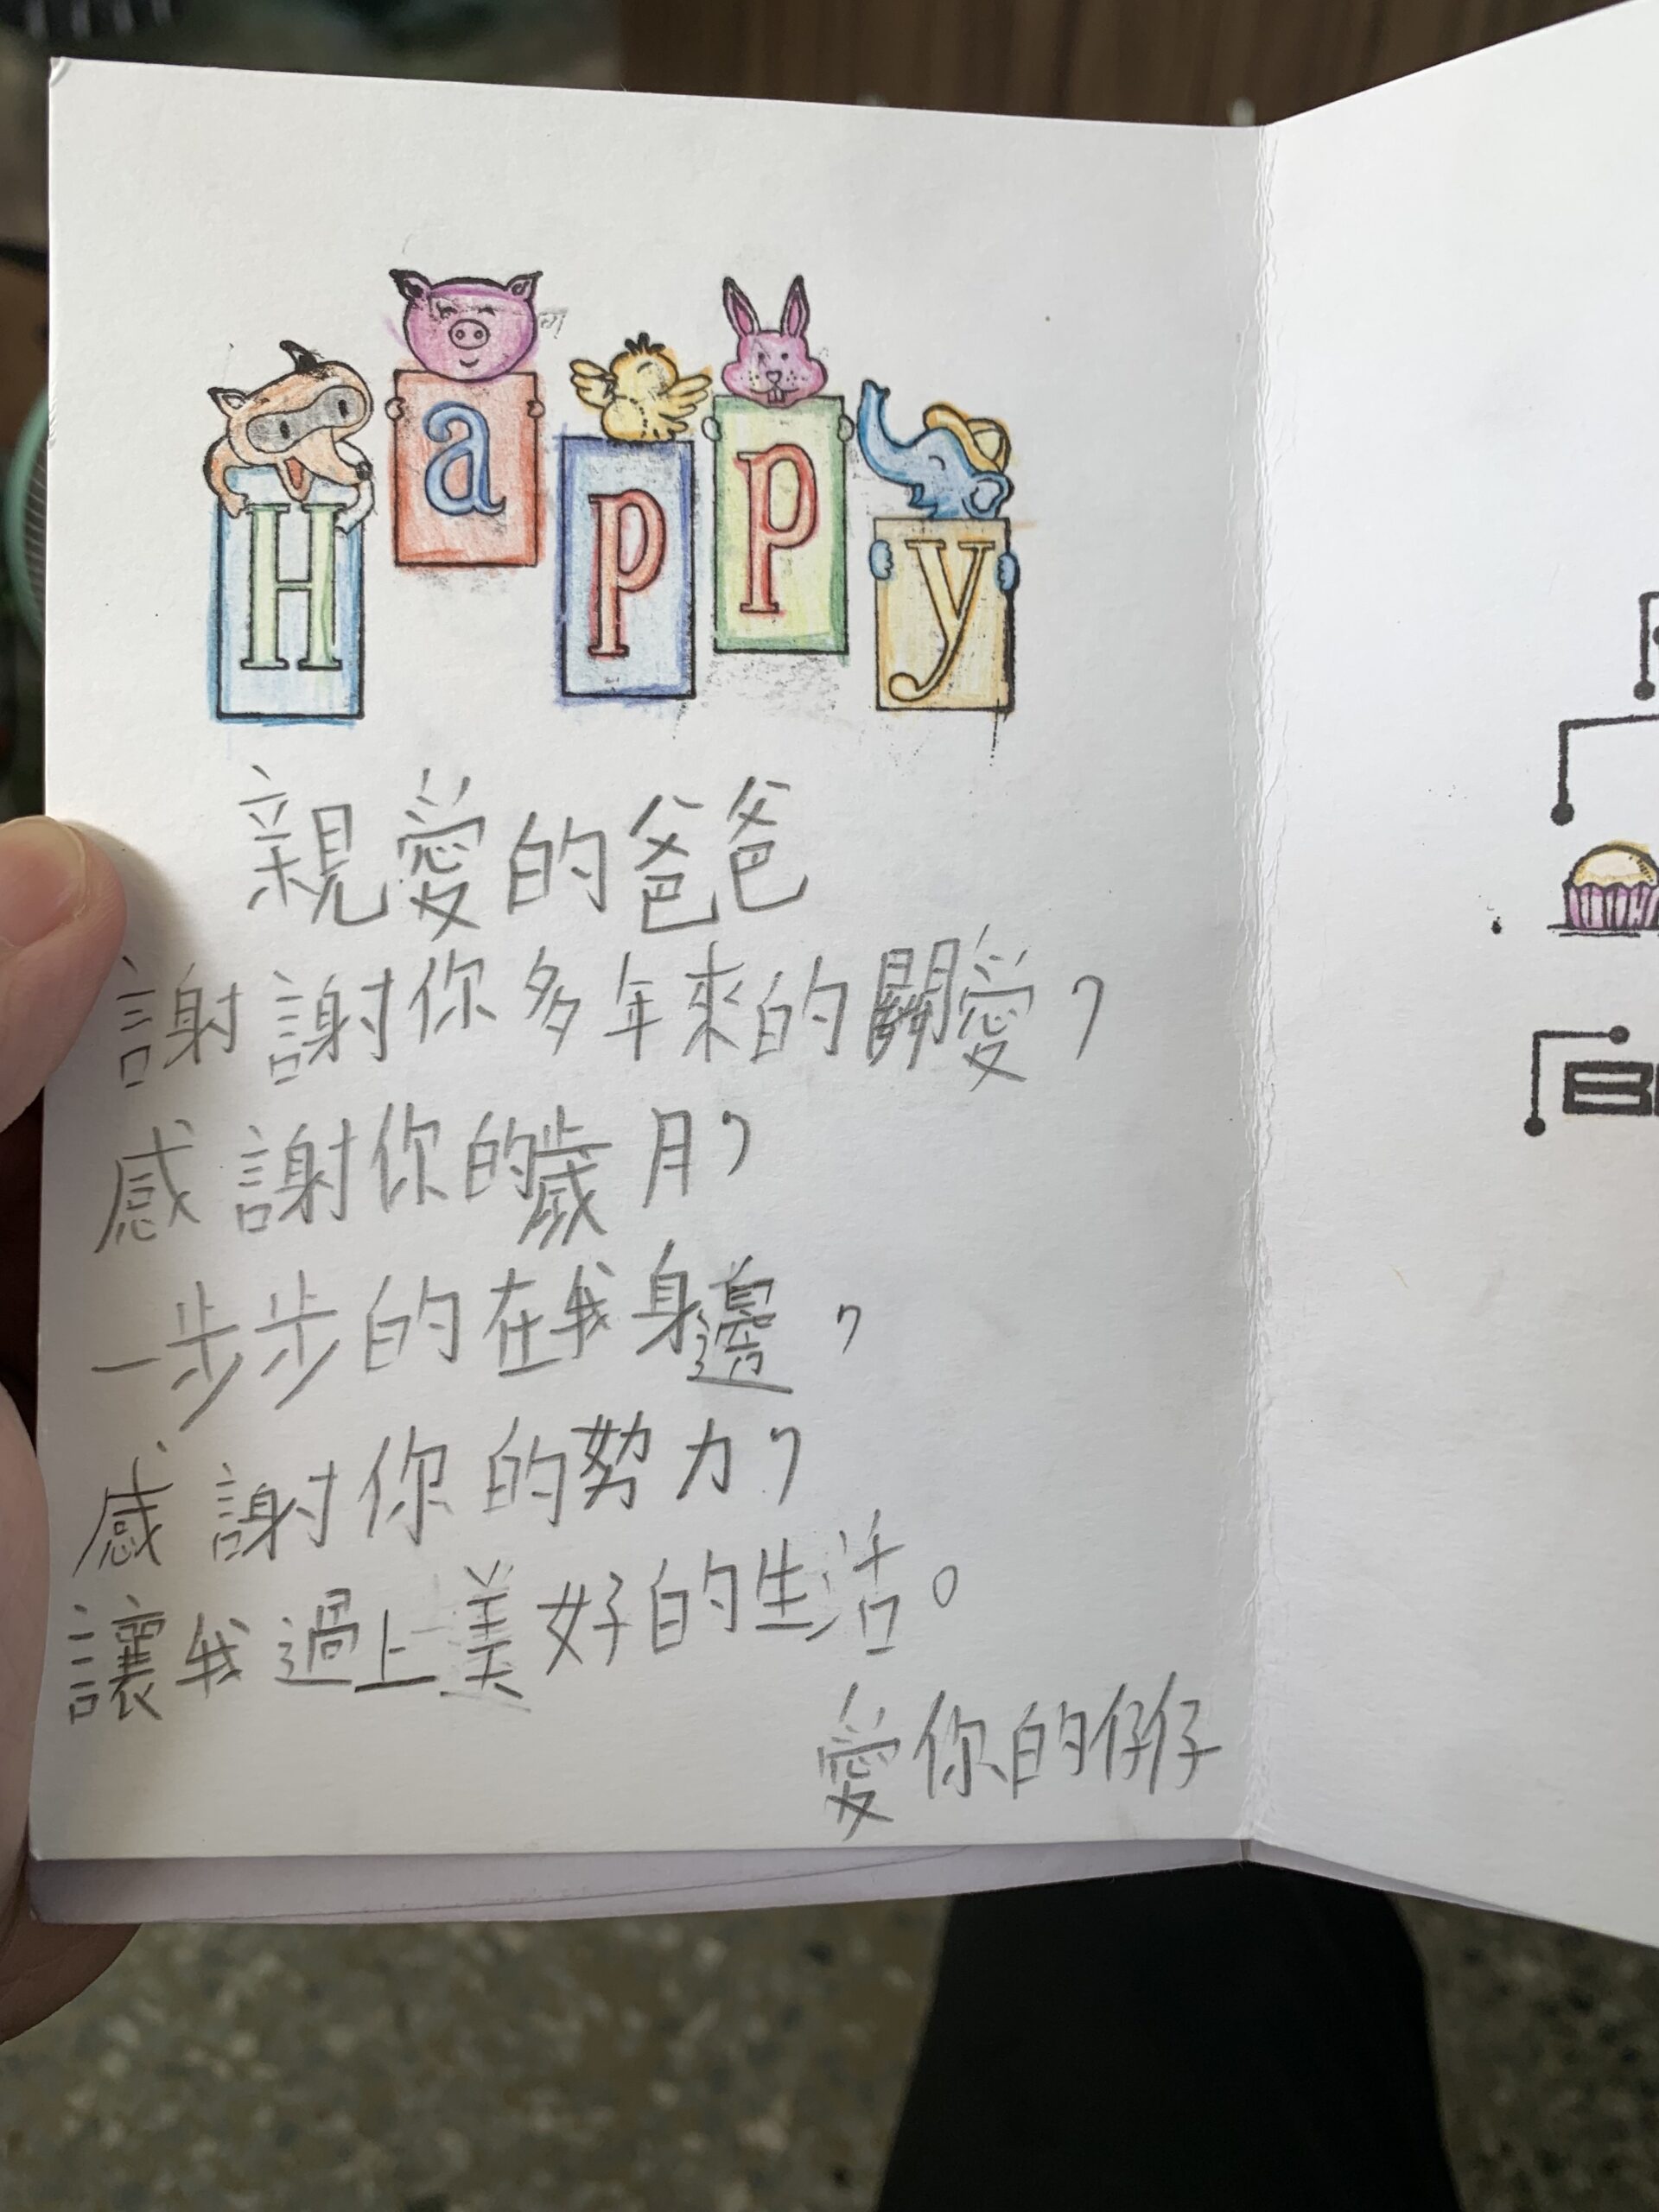 Happy
親愛的爸爸
謝謝你多年來的關愛，
感謝你的歲月，
一步步的在我身邊，
感謝你的努力，
讓我過上美好的生活。
愛你的仔仔